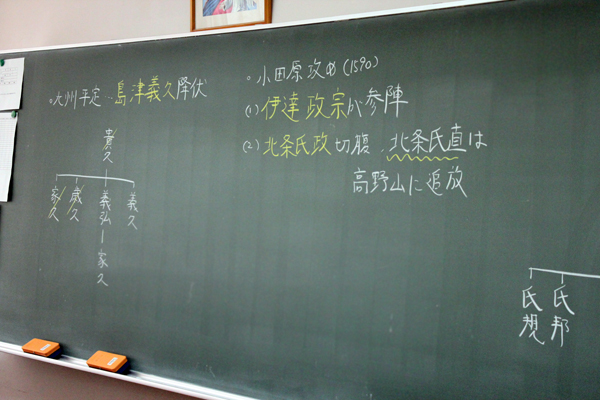 ○九州平定‥島津義久降伏
貴久
義久
義弘ー家久
歳久
家久
○小田原攻め(1590)
(1)伊達政宗が参陣
(2)北条氏政切腹、北条氏直は
高野山に追放
氏邦
氏規